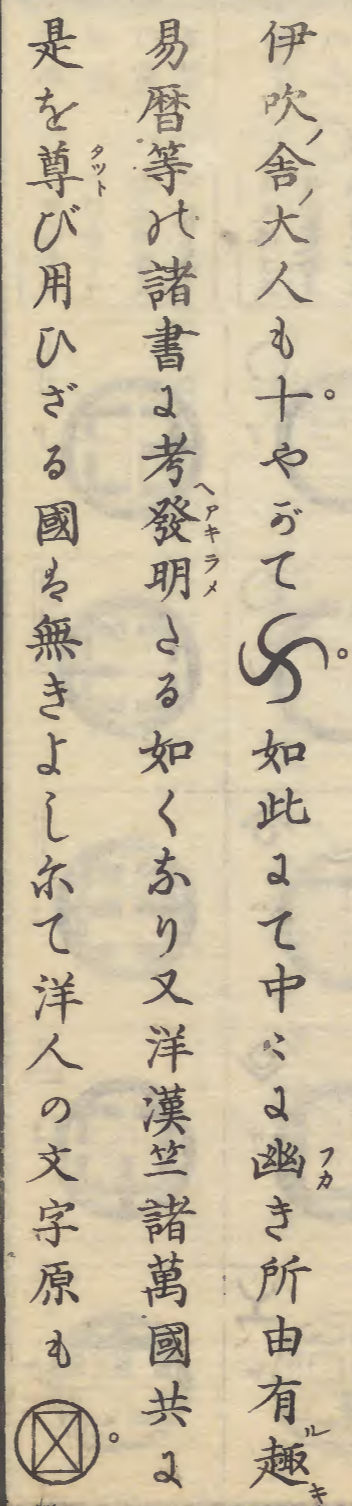 伊吹ノ舎ノ大人も十。やがて卍。如此にて中〻に幽き所由有趣
易暦等の諸書に考發明たる如くなり又洋漢竺諸萬國共に
是を尊び用ひざる國は無きよしにて洋人の文字原も。